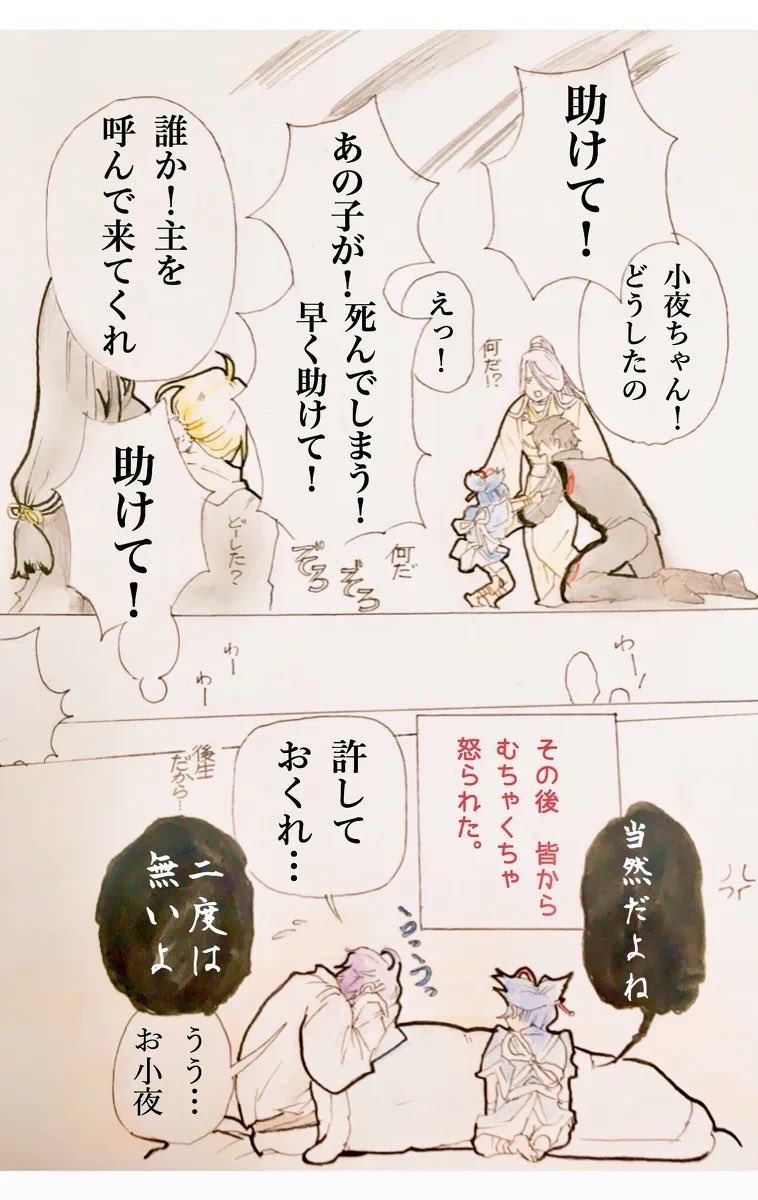 助けて！
小夜ちゃん！
どうしたの
何だ!?
えっ！
あの子が！
死んでしまう！
早く助けて！
何だ
ぞろ
ぞろ
誰か！主を
呼んで来てくれ
どーした？
助けて！
わー！
わー
わー
その後　皆から
むちゃくちゃ
怒られた。
当然だよね
許して
おくれ…
後生
だから…
二度は
無いよ
うう…
お小夜